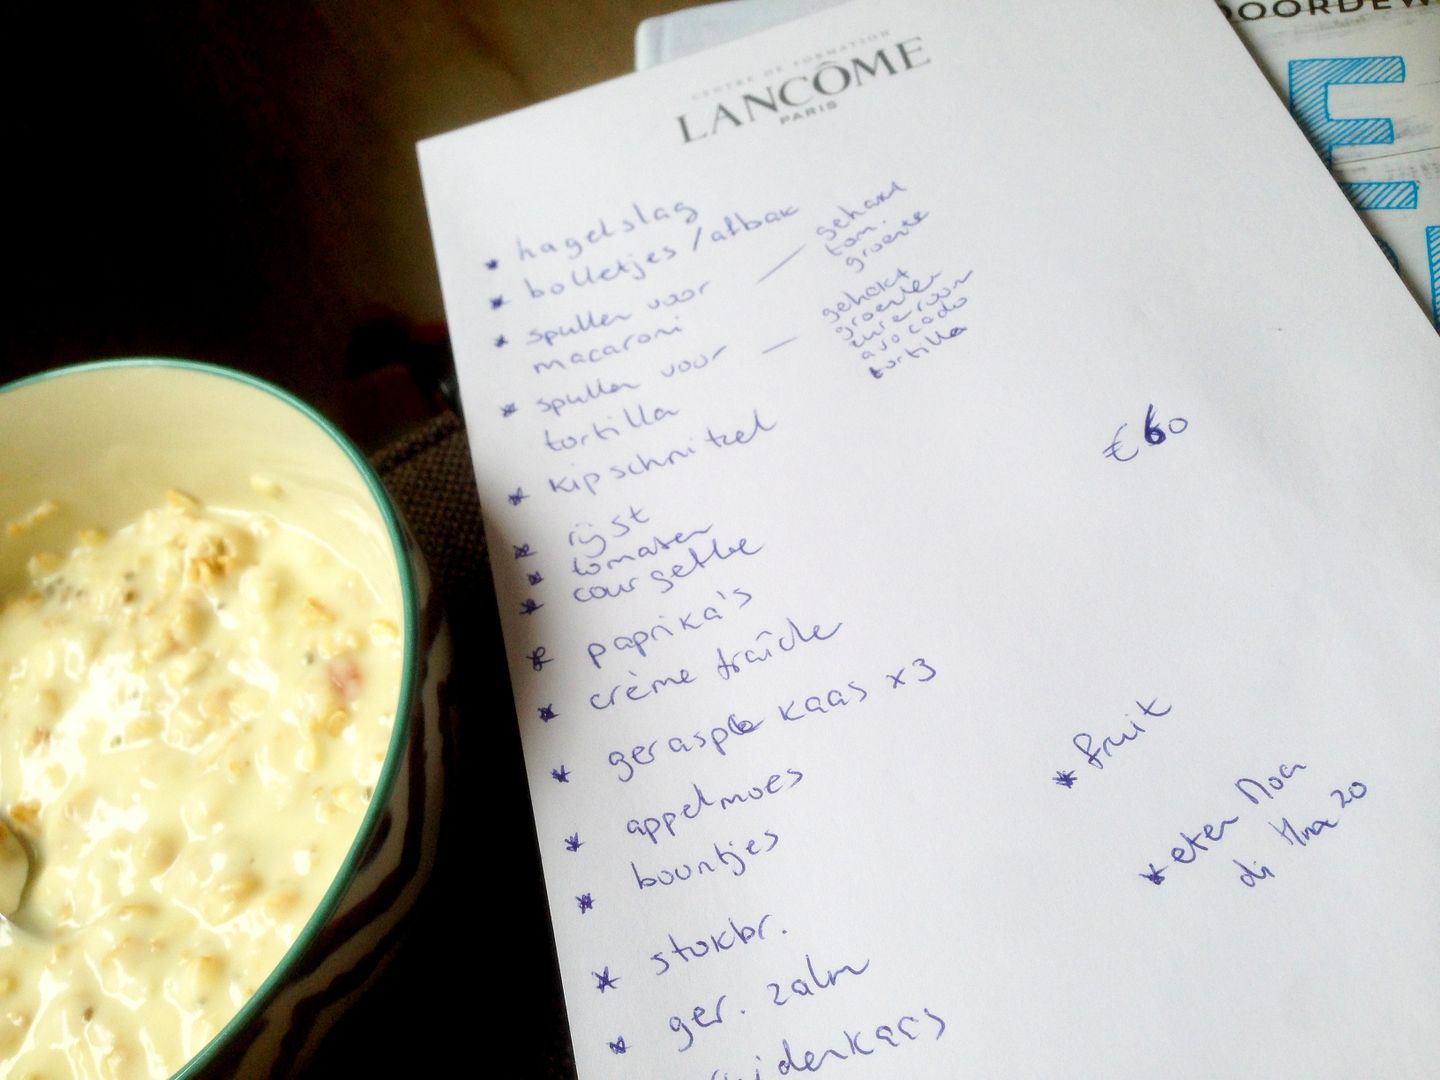 CENTRE DE FORMATION
LANCÔME
PARIS
* hagelslag
* bolletjes / afbak
* spullen voor
macaroni
gehakt
tom.
groente
* spullen voor
tortilla
gehakt
groenten
zure room
avocado
tortilla
* kipschnitzel
* rijst
* tomaten
* courgette
* paprika's
* crème fraîche
* geraspte kaas x3
* appelmoes
* boontjes
* stokbr.
* ger. zalm
€60
* fruit
* eten Noa
di
20